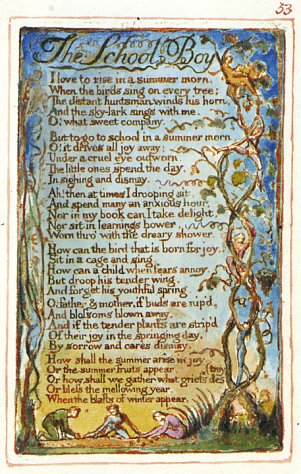 53
The School Boy
I love to rise in a summer morn,
When the birds sing on every tree;
The distant huntsman winds his horn,
And the sky-lark sings with me.
O! what sweet company.
But to go to school in a summer morn
O! it drives all joy away;
Under a cruel eye outworn,
The little ones spend the day,
In sighing and dismay.
Ah! then at times I drooping sit,
And spend many an anxious hour.
Nor in my book can I take delight,
Nor sit in learnings bower,
Worn thro' with the dreary shower.
How can the bird that is born for joy,
Sit in a cage and sing.
How can a child when fears annoy,
But droop his tender wing,
And forget his youthful spring.
O! father & mother, if buds are nip'd,
And blossoms blown away,
And if the tender plants are strip'd
Of their joy in the springing day,
By sorrow and cares dismay,
How shall the summer arise in joy
Or the summer fruits appear
Or how shall we gather what griefs des
troy
Or bless the mellowing year,
When the blasts of winter appear.